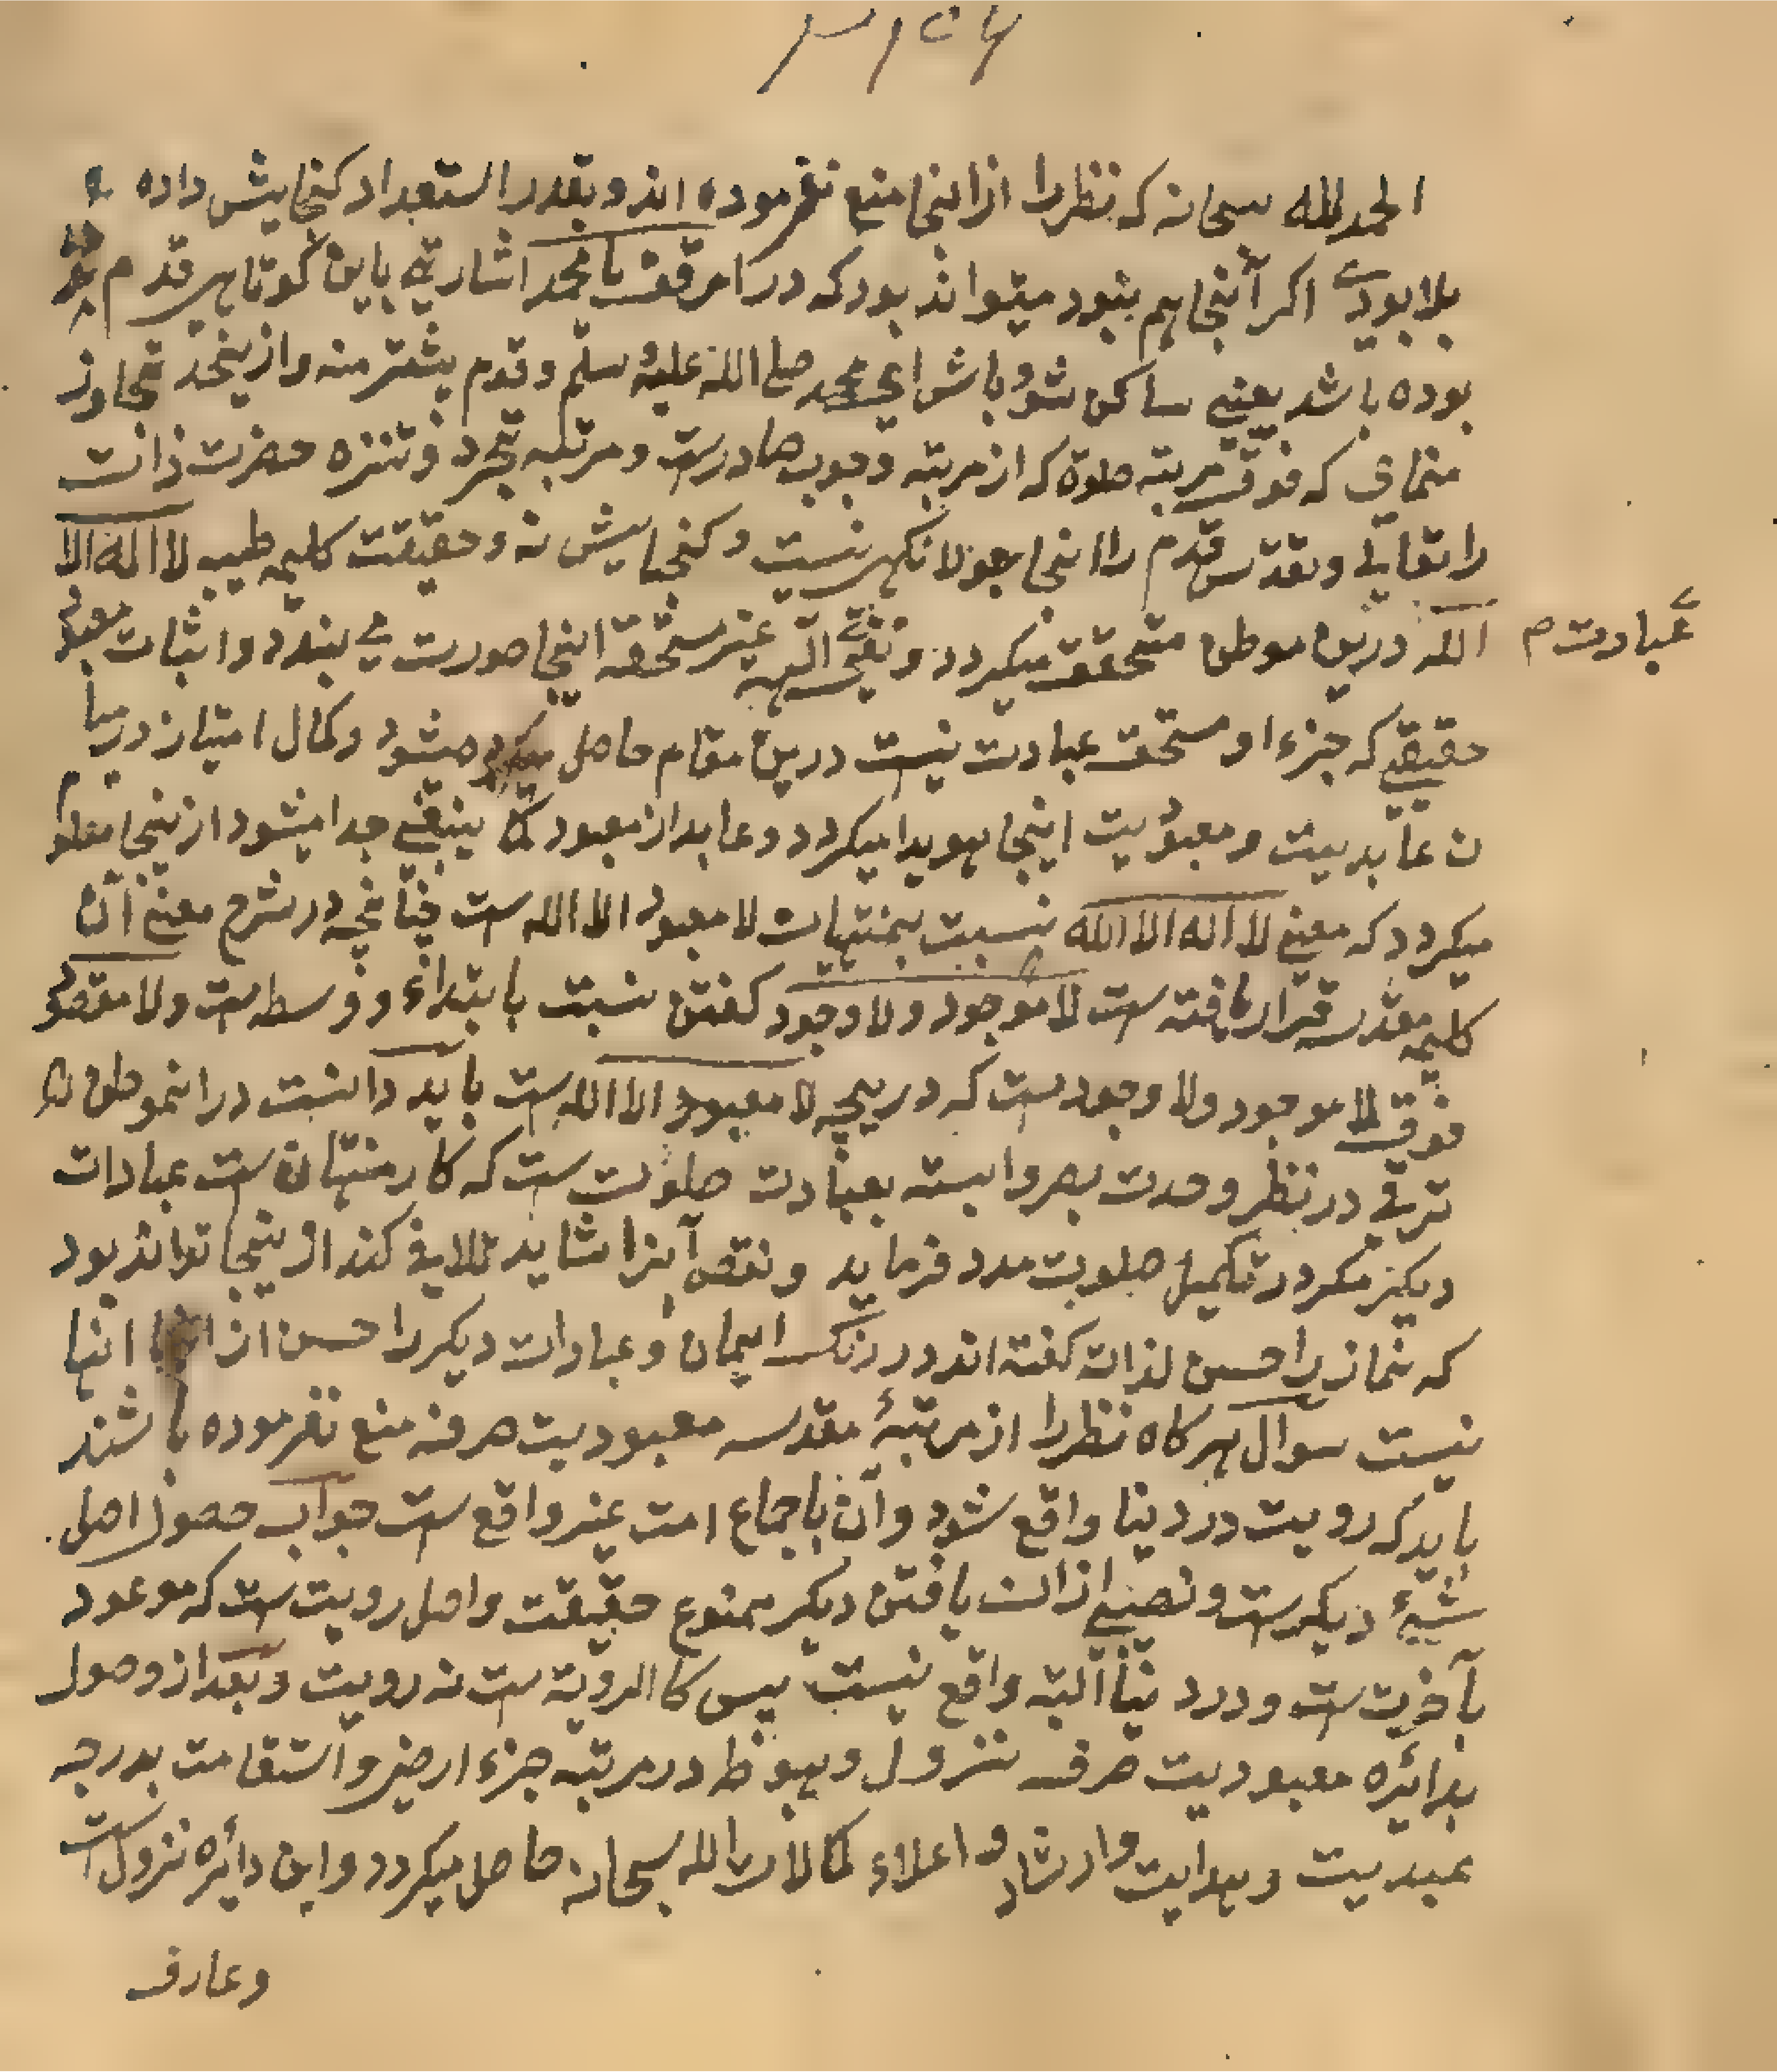 الحمد لله سبحانه که نظر را ازانجا منع نفرموده اند و بقدر استعداد کنجایش داده ع
بلا بودی اکر آنجا هم نبود میتواند بود که در امر قف یا محمد اشارتی باین کوتاهی قدم
بوده باشد یعنی ساکن شو و باش ای محمد صلی الله علیه وسلم و قدم پیشتر منه و ازینحد تجاوز
منمای که فوق مرتبه صلوة که از مرتبه وجوب صادرست و مرتبه تجرد و تنزه حضرت ذات
را تعالی و تقدس قدم را انجا جولانکهی نیست و کنجایش نه و حقیقت کلیمه طیبه لا اله الا
الله درین موطن متحقق میکردد و نفی الهه غیر مستحقه اینجا صورت می بندد و اثبات معبود
عبادت م
حقیقی که جزء او مستحق عبادت نیست درین مقام حاصل میشود و کمال امتیاز درمیا
ن عابدیت و معبودیت اینجا هویدا میکردد و عابد از معبود کما ینبغی جدا میشود از ینجا معلوم
میکردد که معنی لا اله الا الله نسبت بمنتهیان لا معبود الا الله ست چنانچه در شرع معنی آن
کلیمه مقدسه قرار یافته ست لا موجود و لا وجود کفتن نسبت بابتداء و وسط ست و لا مقصود
فوق لا موجود و لا وجودست که دریچه لا معبود الا الله ست باید دانست درانموطن
ترقی در نظر و حدت بصر وابسته بعبادت صلوت ست که کار منتهیان ست عبادات
دیکر مکر در تکمیل صلوت مدد فرماید و نقص آنرا شاید تلافی کند ازینجا تواند بود
که نماز را حسن لذاته کفته اند در رنک ایمان و عبادات دیکر را حسن از انها
نیست سوال هر کاه نظر را از مرتبهٔ مقدسه معبودیت صرفه منع نفرموده باشند
باید که رویت در دنیا واقع شود و آن باجماع امت غیر واقع ست جواب حصول اصل
شیء دیکرست و نصیبی ازان یافتن دیکر ممنوع حقیقت و اصل رویت ست که موعود
بآخرت ست و در دنیا البته واقع نیست پس کالرویة ست نه رویت و بعد از وصول
بدائره معبودیت صرف نزول و هبوط در مرتبه جزء ارضی و استقامت بدرجه
عبدیت و هدایت و ارشاد و اعلاء کمالات الله سبحانه حاصل میکردد و این دائره نزول است
وعارف